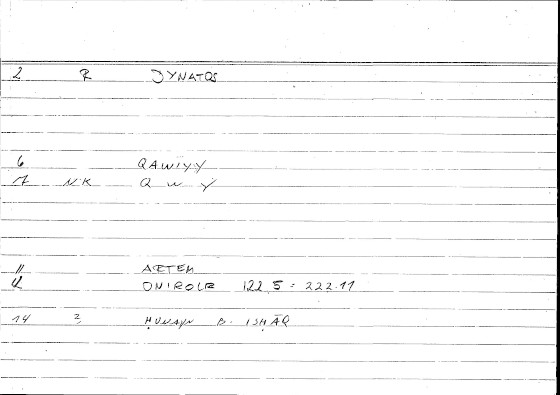 2 R DYNATOS
6 QAWIYY
7 NK Q W Y
11 ARTEM
12 ONIROCR 122.5 = 222.11
14 2 ḤUNAYN B. ISḤĀQ